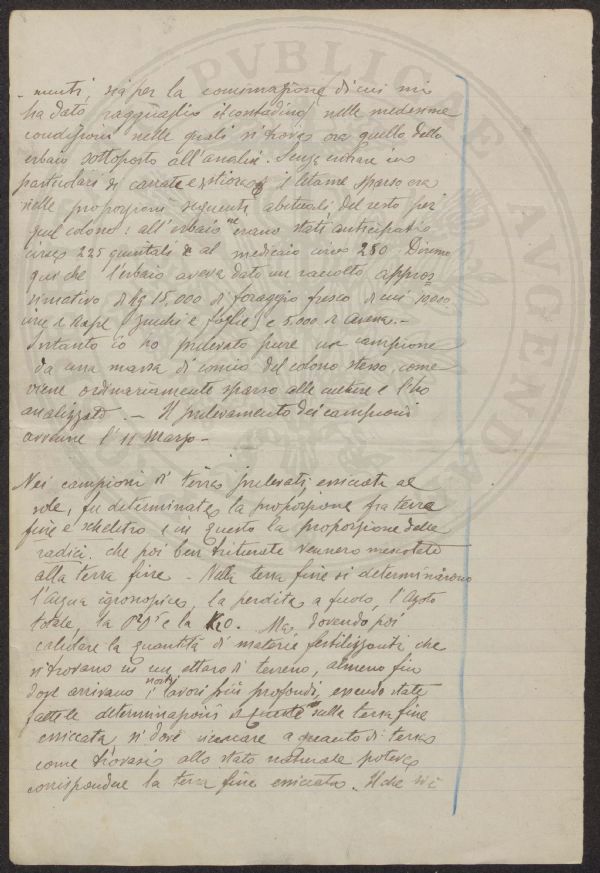 - menti, sia per la concimazione di cui mi
ha dato ragguaglio il contadino nelle medesime
condizioni nelle quali si trova ora quello dello
erbaio sottoposto all'analisi. Senza entrare in
particolari di carrate e il letame sparso era
nelle proporzioni seguenti abituali del resto per
quel colono: all'erbaio ne erano stati anticipati
circa 225 quintali e al medicaio circa 250. Diremo
qui che l'erbaio aveva dato un raccolto appros=
simativo di Kg 15.000 di foraggio fresco di cui 10000
circa di Rape (zucchi e foglie) e 5.000 di avena.-
Intanto io ho prelevato pure un campione
da una massa di concio del colono stesso, come
viene ordinariamente sparso alle culture e l'ho
analizzato. - Il prelevamento dei campioni
avvenne l'11 Marzo -
Nei campioni di terra prelevati, essiccata al
sole, fu determinata la proporzione fra terra
fine e scheletro e in questo la proporzione delle
radici. che poi ben triturate vennero mescolate
alla terra fine - Nella terra fine si determinarono
l'acqua igroscopica, la perdita a fuoco, l'Azoto
totale, la P2O5 e la K2O. Ma, dovendo poi
calcolare la quantità di materie fertilizzanti che
si trovano in un ettaro di terreno, almeno fin
dove arrivano i nostri lavori più profondi, essendo state
fatte le determinazioni sulla terra fine
essiccata, si dové ricercare a quanto di terra
come trovasi allo stato naturale poteva
corrispondere la terra fine essiccata. Il che si è
PVBLICAE
AVGENDAE